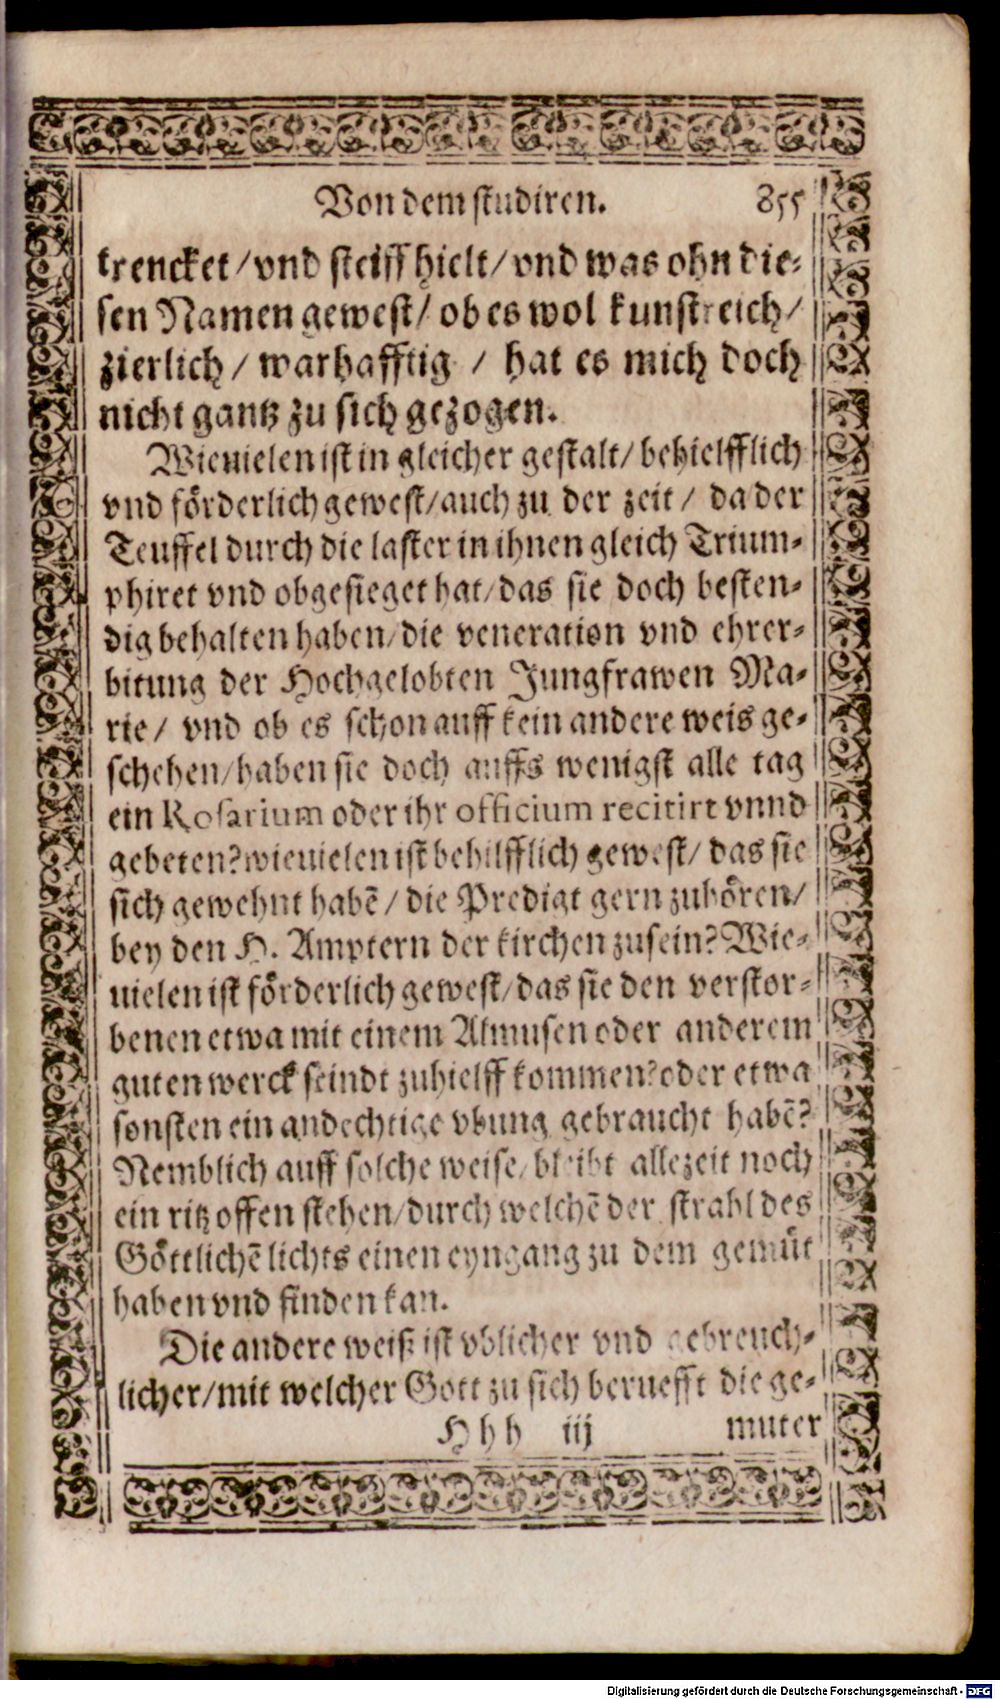 Von dem studiren. 855
trencket/vnd steiff hielt/vnd was ohn die-
sen Namen gewest/ ob es wol kunstreich/
zierlich/ warhafftig / hat es mich doch
nicht gantz zu sich gezogen.
Wieuielen ist in gleicher gestalt/ behielfflich
vnd förderlich gewest/auch zu der zeit/ da der
Teuffel durch die laster in ihnen gleich Trium-
phiret vnd obgesieget hat/das sie doch besten-
dig behalten haben/die veneration vnd ehrer-
bitung der Hochgelobten Jungfrawen Ma-
rie/ vnd ob es schon auff kein andere weis ge-
schehen/haben sie doch auffs wenigst alle tag
ein Rosarium oder ihr officium recitirt vnnd
gebeten?wieuielen ist behilfflich gewest/ das sie
sich gewehnt habē/ die Predigt gern zuhören/
bey den H. Amptern der kirchen zusein?Wie-
uielen ist förderlich gewest/das sie den verstor-
benen etwa mit einem Almusen oder anderem
guten werck seindt zuhielff kommen?oder etwa
sonsten ein andechtige vbung gebraucht habē?
Nemblich auff solche weise/bleibt allezeit noch
ein ritz offen stehen/durch welchē der strahl des
Göttlichē lichts einen eyngang zu dem gemüt
haben vnd finden kan.
Die andere weiß ist vblicher vnd gebreuch-
licher/mit welcher Gott zu sich beruefft die ge-
Hhh iij muter
Digitalisierung gefördert durch die Deutsche Forschungsgemeinschaft - DFG